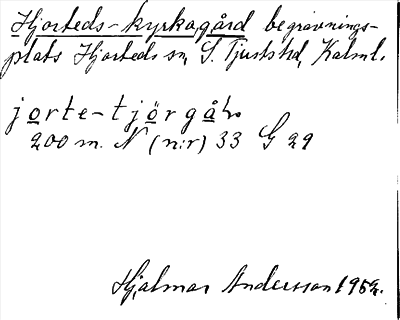 Hjorteds-kyrkogård begravnings-
plats Hjorteds sn, S. Tjusts hd, Kalml.
jorte-tjörgål.
200 m. N (n:r) 33 G 29
Hjalmar Andersson 1952.